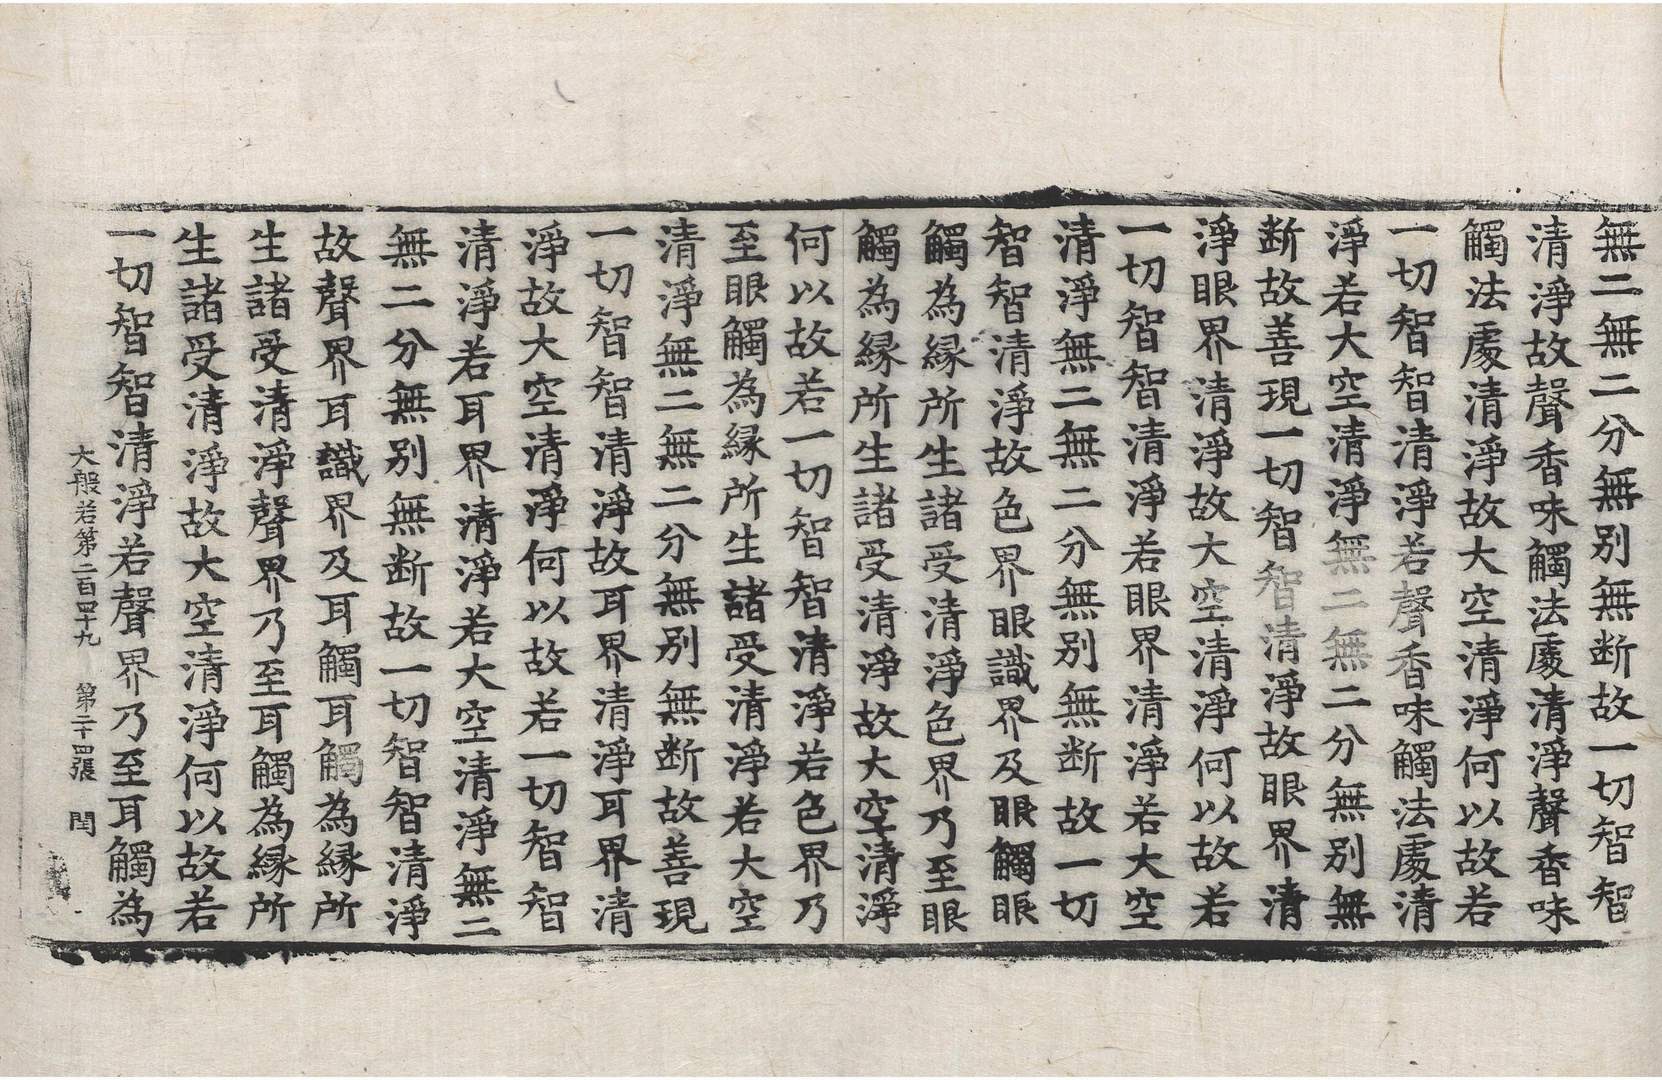 無二無二分無別無断故一切智智
清淨故聲香味觸法處清淨聲香味
觸法處清淨故大空清淨何以故若
一切智智清淨若聲香味觸法處清
淨若大空清淨無二無二分無別無
断故善現一切智智清淨故眼界清
淨眼界清淨故大空清淨何以故若
一切智智清淨若眼界清淨若大空
清淨無二無二分無別無断故一切
智智清淨故色界眼識界及眼觸眼
觸為縁所生諸受清淨色界乃至眼
觸為縁所生諸受清淨故大空清淨
何以故若一切智智清淨若色界乃
至眼觸為縁所生諸受清淨若大空
清淨無二無二分無別無断故善現
一切智智清淨故耳界清淨耳界清
淨故大空清淨何以故若一切智智
清淨若耳界清淨若大空清淨無二
無二分無別無断故一切智智清淨
故聲界耳識界及耳觸耳觸為縁所
生諸受清淨聲界乃至耳觸為縁所
生諸受清淨故大空清淨何以故若
一切智智清淨若聲界乃至耳觸為
大般若第二百四十九 第二十四張 閏